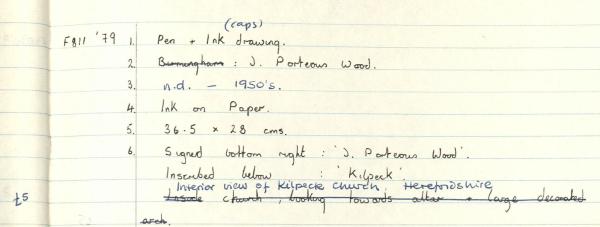 (caps)
F811 '79 1. Pen + Ink drawing.
2. Burmingham : J. Porteous Wood.
3. n.d. – 1950's.
4. Ink on Paper.
5. 36.5 x 28 cms.
6. Signed bottom right : 'J. Porteous Wood'.
Inscribed below : 'Kilpeck'.
Interior view of Kilpeck Church, Herefordshire
£5 Inside church, looking towards altar + large decorated
arch.